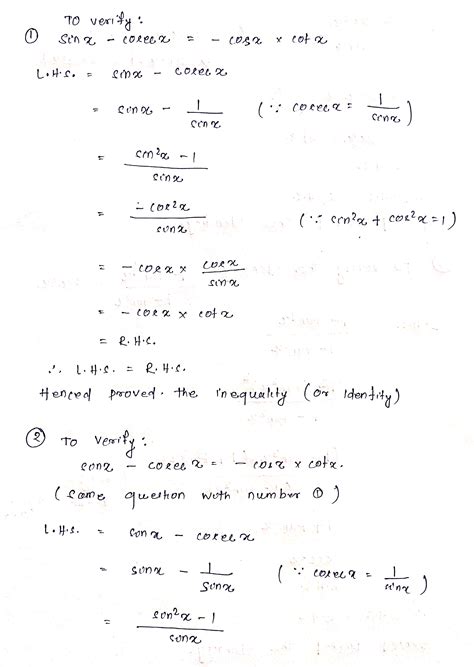 To verify:
① sinx - cosecx = - cosx × cotx
L.H.S. = sinx - cosecx
= sinx - 1/sinx (∵ cosecx = 1/sinx)
= sin²x - 1 / sinx
= - cos²x / sinx (∵ sin²x + cos²x = 1)
= - cosx × cosx/sinx
= - cosx × cotx
= R.H.S.
∴ L.H.S. = R.H.S.
Henced proved. the inequality (or Identity)
② To verify:
sinx - cosecx = - cosx × cotx.
(same question with number ①)
L.H.S. = sinx - cosecx
= sinx - 1/sinx (∵ cosecx = 1/sinx)
= sin²x - 1 / sinx